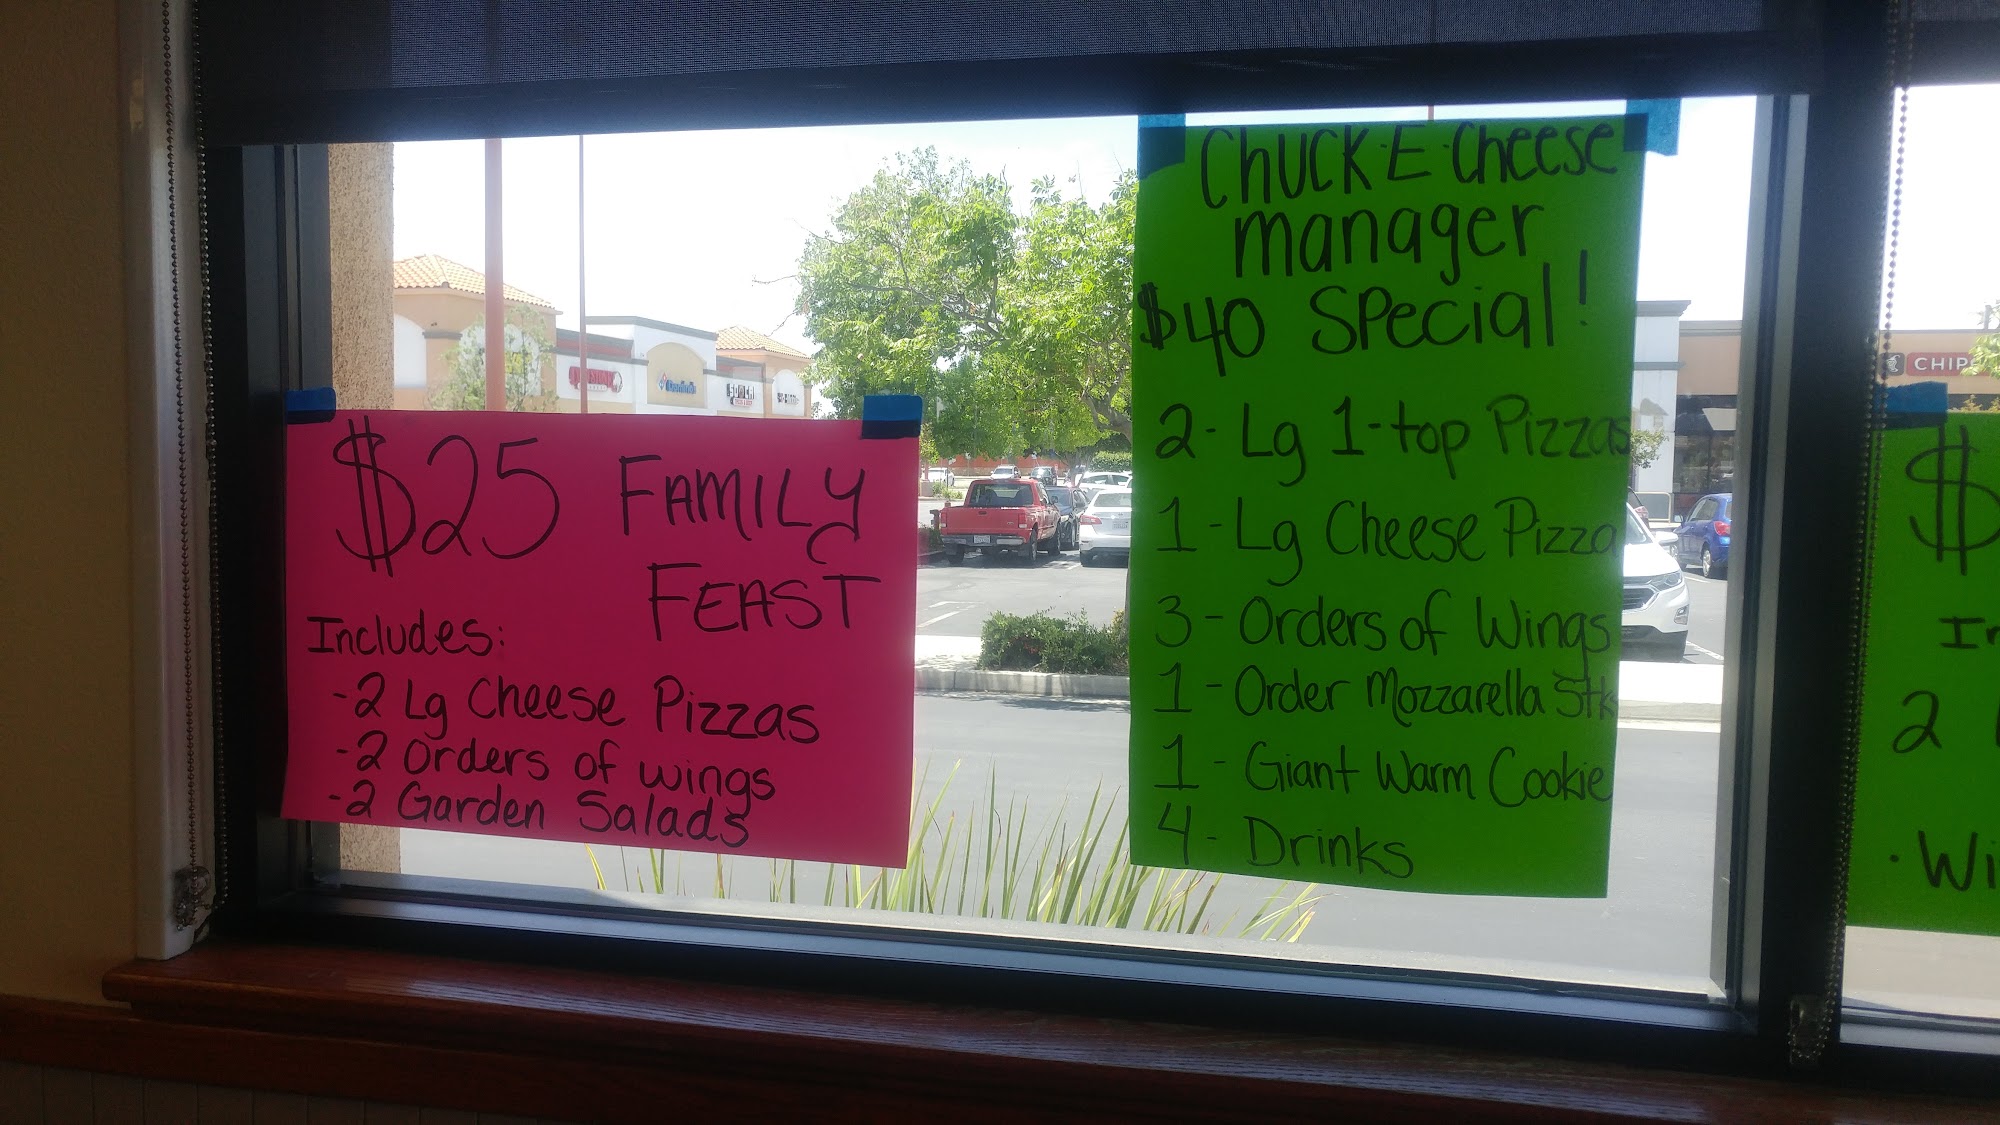 $25 FAMILY
FEAST
Includes:
-2 Lg Cheese Pizzas
-2 Orders of wings
-2 Garden Salads
Chuck E Cheese
manager
$40 Special!
2- Lg 1-top Pizzas
1 - Lg Cheese Pizza
3 - Orders of Wings
1 - Order Mozzarella Stks
1 - Giant Warm Cookie
4 - Drinks
Domino's
CHIP
$
In
2
· Wi